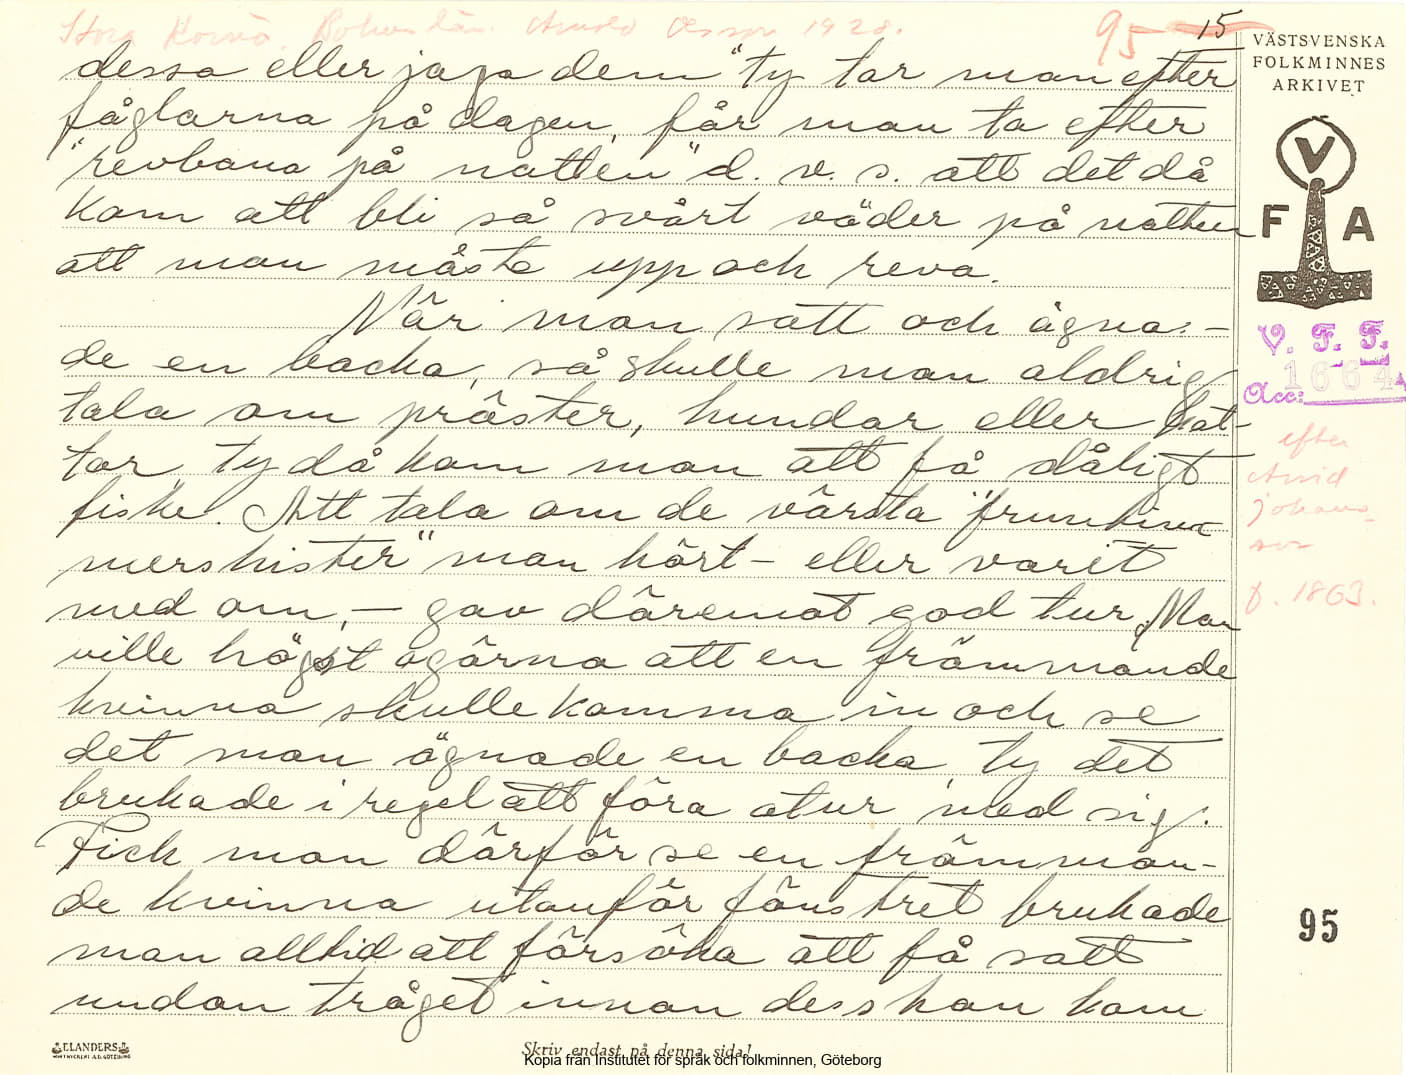 Stora Kornö. Bohuslän. Arnold Olsson 1928.
95 15
dessa eller jaga dem "ty tar man efter
fåglarna på dagen, får man ta efter
"revbana på natten" d. v. s. att det då
kom att bli så svårt väder på natten
att man måste upp och reva.
När man satt och ägna-
de en backa, så skulle man aldrig
tala om präster, hundar eller kat-
tor, ty då kom man att få dåligt
fiske. Att tala om de värsta "fruntim-
mershister" man hört - eller varit
med om, - gav däremot god tur. Man
ville högst ogärna att en främmande
kvinna skulle komma in och se
det man ägnade en backa, ty det
brukade i regel att föra otur med sig.
Fick man därför se en främman-
de kvinna utanför fönstret brukade
man alltid att försöka att få satt
undan tråget innan dess hon kom
VÄSTSVENSKA
FOLKMINNES
ARKIVET
V
F A
V. F. F.
Acc: 1664
efter
Arvid
Johans-
son
f. 1863.
95
ELANDERS
Skriv endast på denna sida!
Kopia från Institutet för språk och folkminnen, Göteborg